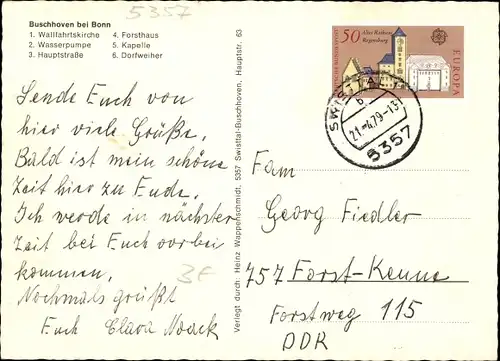 5357
Buschhoven bei Bonn
1. Wallfahrtskirche 4. Forsthaus
2. Wasserpumpe 5. Kapelle
3. Hauptstraße 6. Dorfweiher
Sende Euch von
hier viele Grüße.
Bald ist mein schöne
Zeit hier zu Ende.
Ich werde in nächster
Zeit bei Euch vorbei
kommen.
Nochmals grüßt
Euch Clara Noack
3F
Verlegt durch: Heinz Wappenschmidt, 5357 Swisttal-Buschhoven, Hauptstr. 63
50 Altes Rathaus
Regensburg
EUROPA
SWISTTAL
b
21.-4.79-13
5357
Fam
Georg Fiedler
757 Forst-Keune
Forstweg 115
DDR